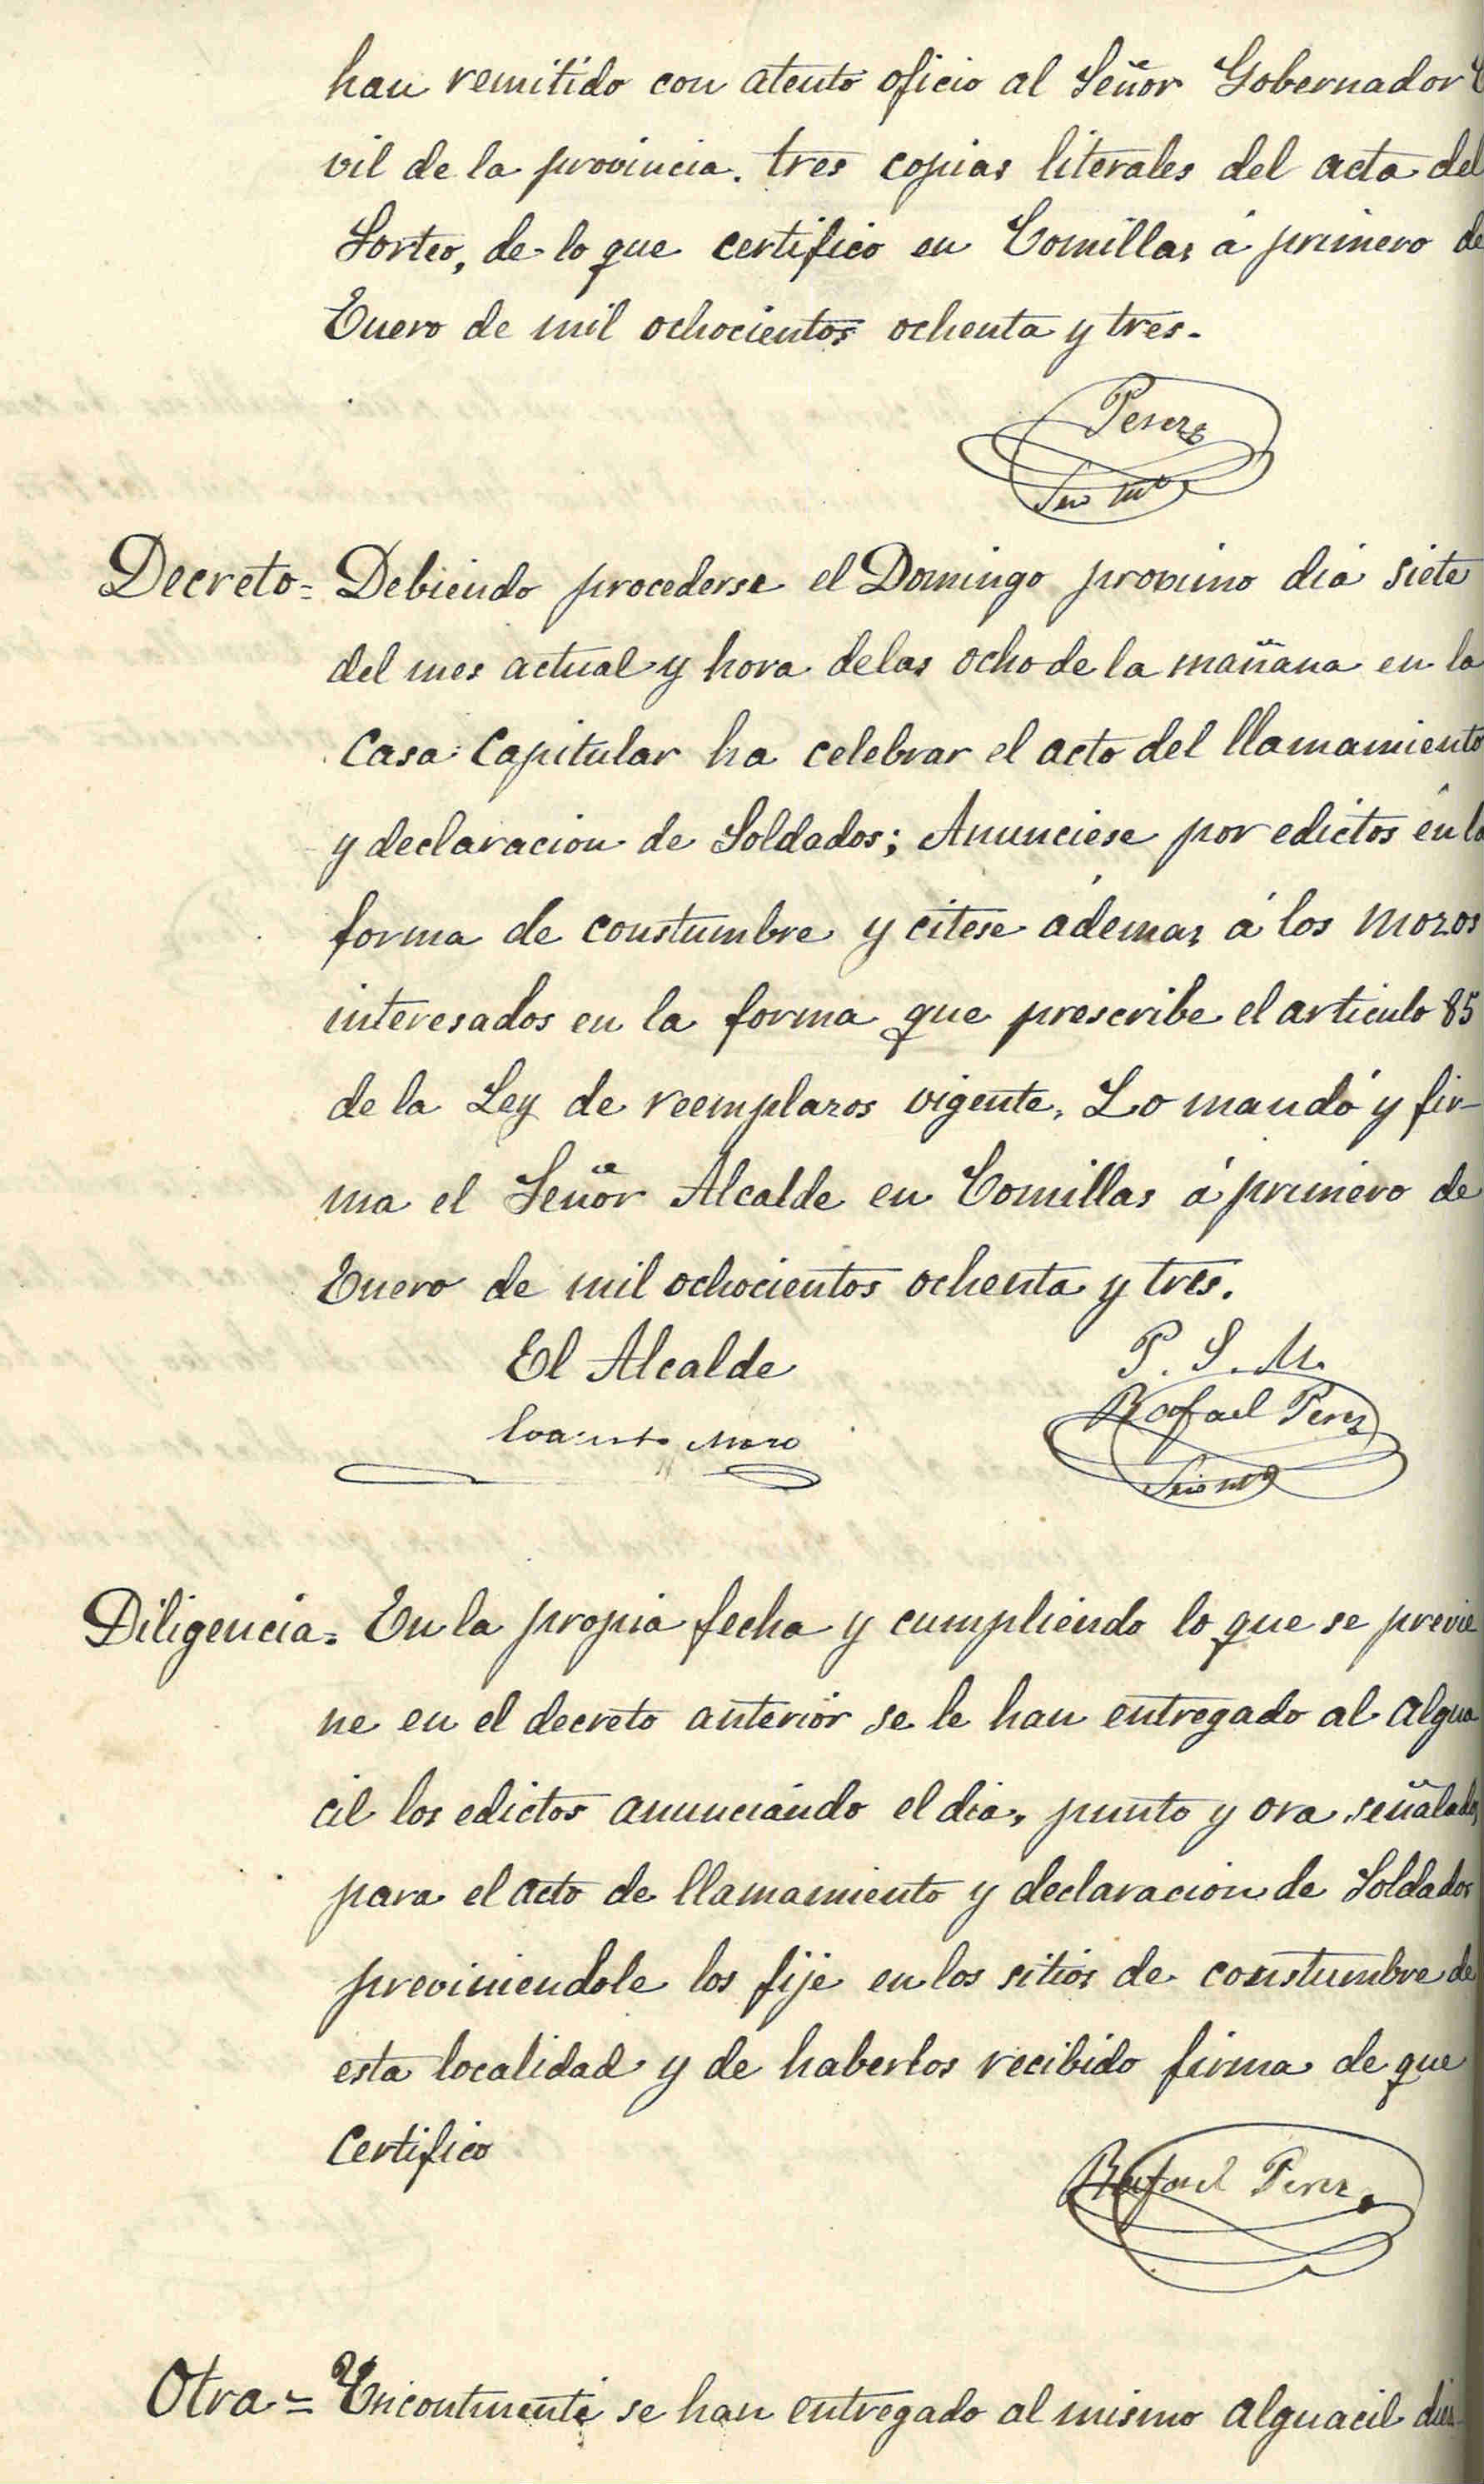 han remitido con atento oficio al Señor Gobernador C
vil de la provincia. tres copias literales del acta del
Sorteo, de lo que certifico en Comillas á primero de
Enero de mil ochocientos ochenta y tres.
Perez
Decreto = Debiendo procederse el Domingo proximo dia siete
del mes actual y hora delas ocho de la mañana en la
Casa Capitular ha celebrar el acto del llamamiento
y declaracion de Soldados; Anunciese por edictos en la
forma de constumbre y citese ádemas á los mozos
interesados en la forma que prescribe el articulo 85
de la Ley de reemplazos vigente. Lo mandó y fir-
ma el Señor Alcalde en Comillas á primero de
Enero de mil ochocientos ochenta y tres.
El Alcalde P. S. M.
Rafael Perez
Diligencia = En la propia fecha y cumpliendo lo que se previe
ne en el decreto anterior se le han entregado al algua
cil los edictos anunciando el dia, punto y ora señalados
para el acto de llamamiento y declaracion de Soldados
previniendole los fije en los sitios de constumbre de
esta localidad y de haberlos recibido firma de que
Certifico
Rafael Perez
Otra = Encontinenti se han entregado al mismo alguacil